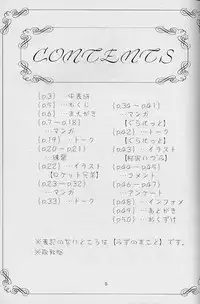 CONTENTS
(p.3) …中表紙
(p.5) …もくじ
(p.6) …まえがき
(p.7~p.18)
…マンガ
(p.19) …トーク
(p.20~p.21)
(p.22) …イラスト
(p.23~p.32)
…マンガ
(p.33) …トーク
(p.34~p.41)
…マンガ
【くらげっと】
(p.42) …トーク
【くらげっと】
(p.43) …イラスト
(p.44~p.45)
…コメント
(p.46~p.47)
…アンケート
(p.48) …インフォメ
(p.49) …あとがき
(p.50) …おくづけ
※表記のないところは【みずのまこと】です。
※敬称略